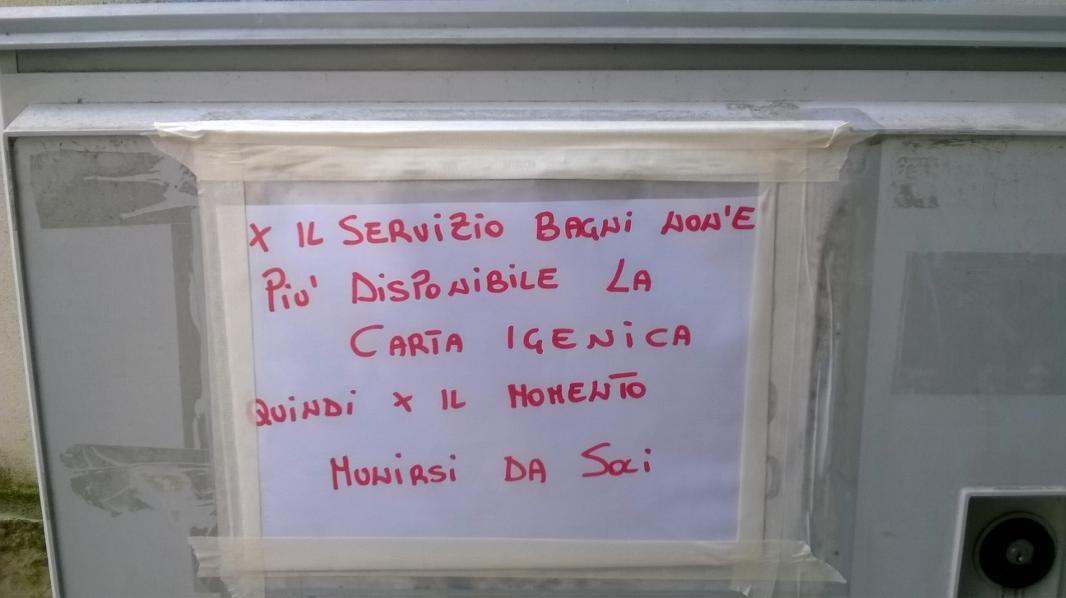 X IL SERVIZIO BAGNI NON'E
PIU' DISPONIBILE LA
CARTA IGENICA
QUINDI X IL MOMENTO
MUNIRSI DA SOLI